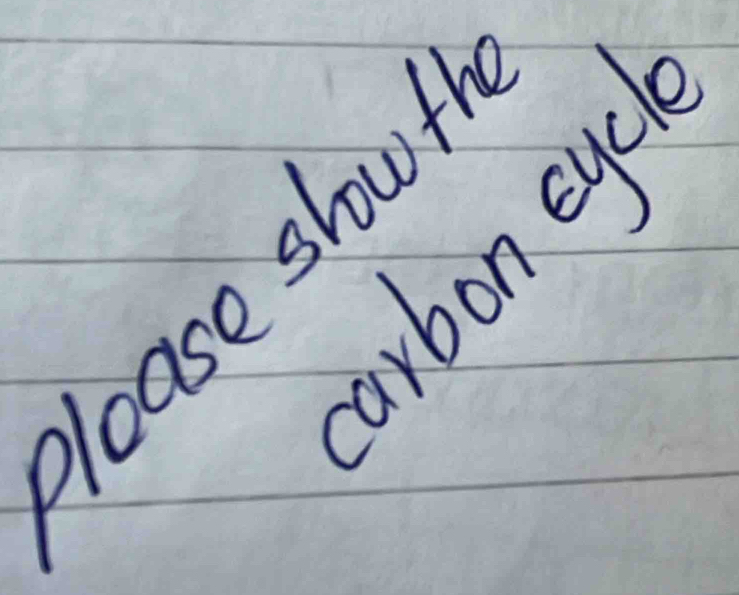 please show the
carbon cycle